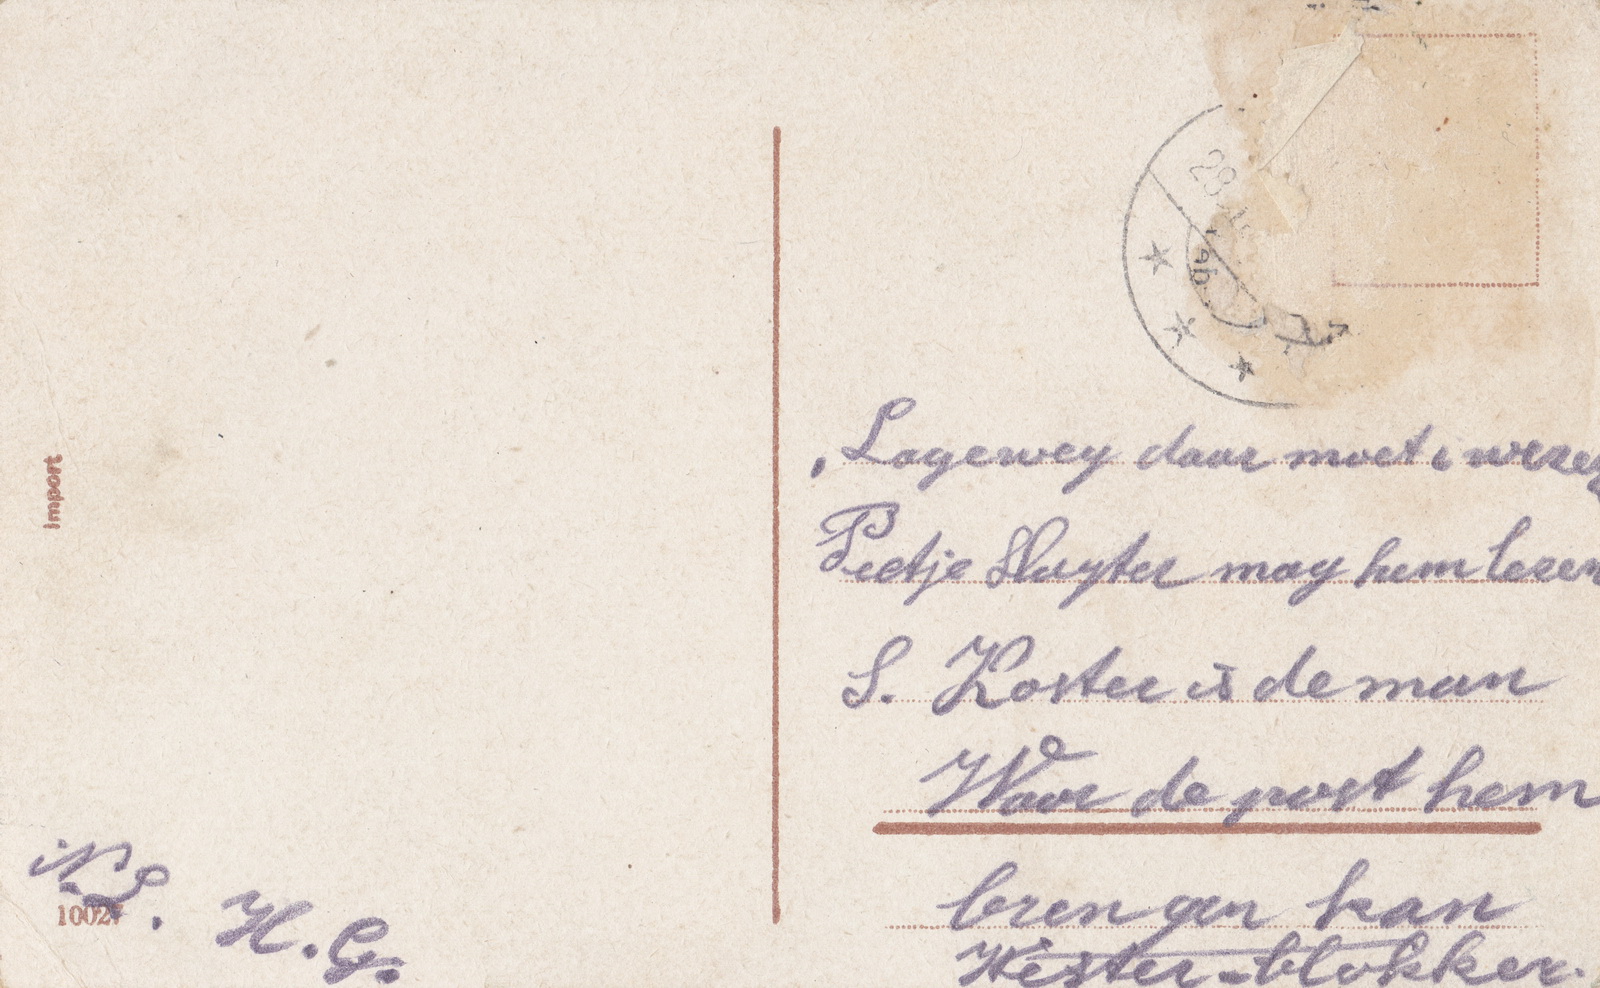 28
Lagewey daar moet i wezen
Pietje Sluyter may hem lezen
S. Koster is de man
Waar de post hem
brengen kan
Wester-blokker.
import
N.S. H.G.
10027